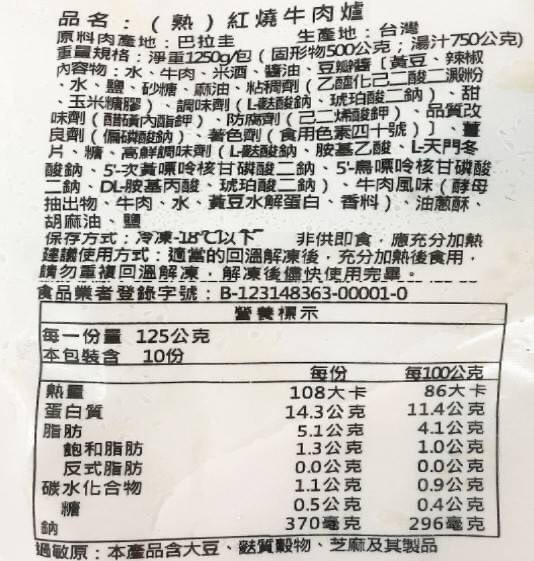 品名：（熟）紅燒牛肉爐
原料肉產地：巴拉圭　　生產地：台灣
重量規格：淨重1250g/包（固形物500公克；湯汁750公克)
內容物：水、牛肉、米酒、醬油、豆瓣醬〔黃豆、辣椒
、水、鹽、砂糖、麻油、粘稠劑（乙醯化己二酸二澱粉
、玉米糖膠）、調味劑（L-麩酸鈉、琥珀酸二鈉）、甜
味劑（醋磺內酯鉀）、防腐劑（己二烯酸鉀）、品質改
良劑（偏磷酸鈉）、著色劑（食用色素四十號）〕、薑
片、糖、高鮮調味劑（L-麩酸鈉、胺基乙酸、L-天門冬
酸鈉、5'-次黃嘌呤核甘磷酸二鈉、5'-鳥嘌呤核甘磷酸
二鈉、DL-胺基丙酸、琥珀酸二鈉）、牛肉風味（酵母
抽出物、牛肉、水、黃豆水解蛋白、香料）、油蔥酥、
胡麻油、鹽
保存方式：冷凍-18℃以下　　非供即食，應充分加熱
建議使用方式：適當的回溫解凍後，充分加熱後食用，
請勿重複回溫解凍，解凍後儘快使用完畢。
食品業者登錄字號：B-123148363-00001-0
營養標示
每一份量 125公克
本包裝含 10份
每份 每100公克
熱量 108大卡 86大卡
蛋白質 14.3公克 11.4公克
脂肪 5.1公克 4.1公克
飽和脂肪 1.3公克 1.0公克
反式脂肪 0.0公克 0.0公克
碳水化合物 1.1公克 0.9公克
糖 0.5公克 0.4公克
鈉 370毫克 296毫克
過敏原：本產品含大豆、麩質穀物、芝麻及其製品